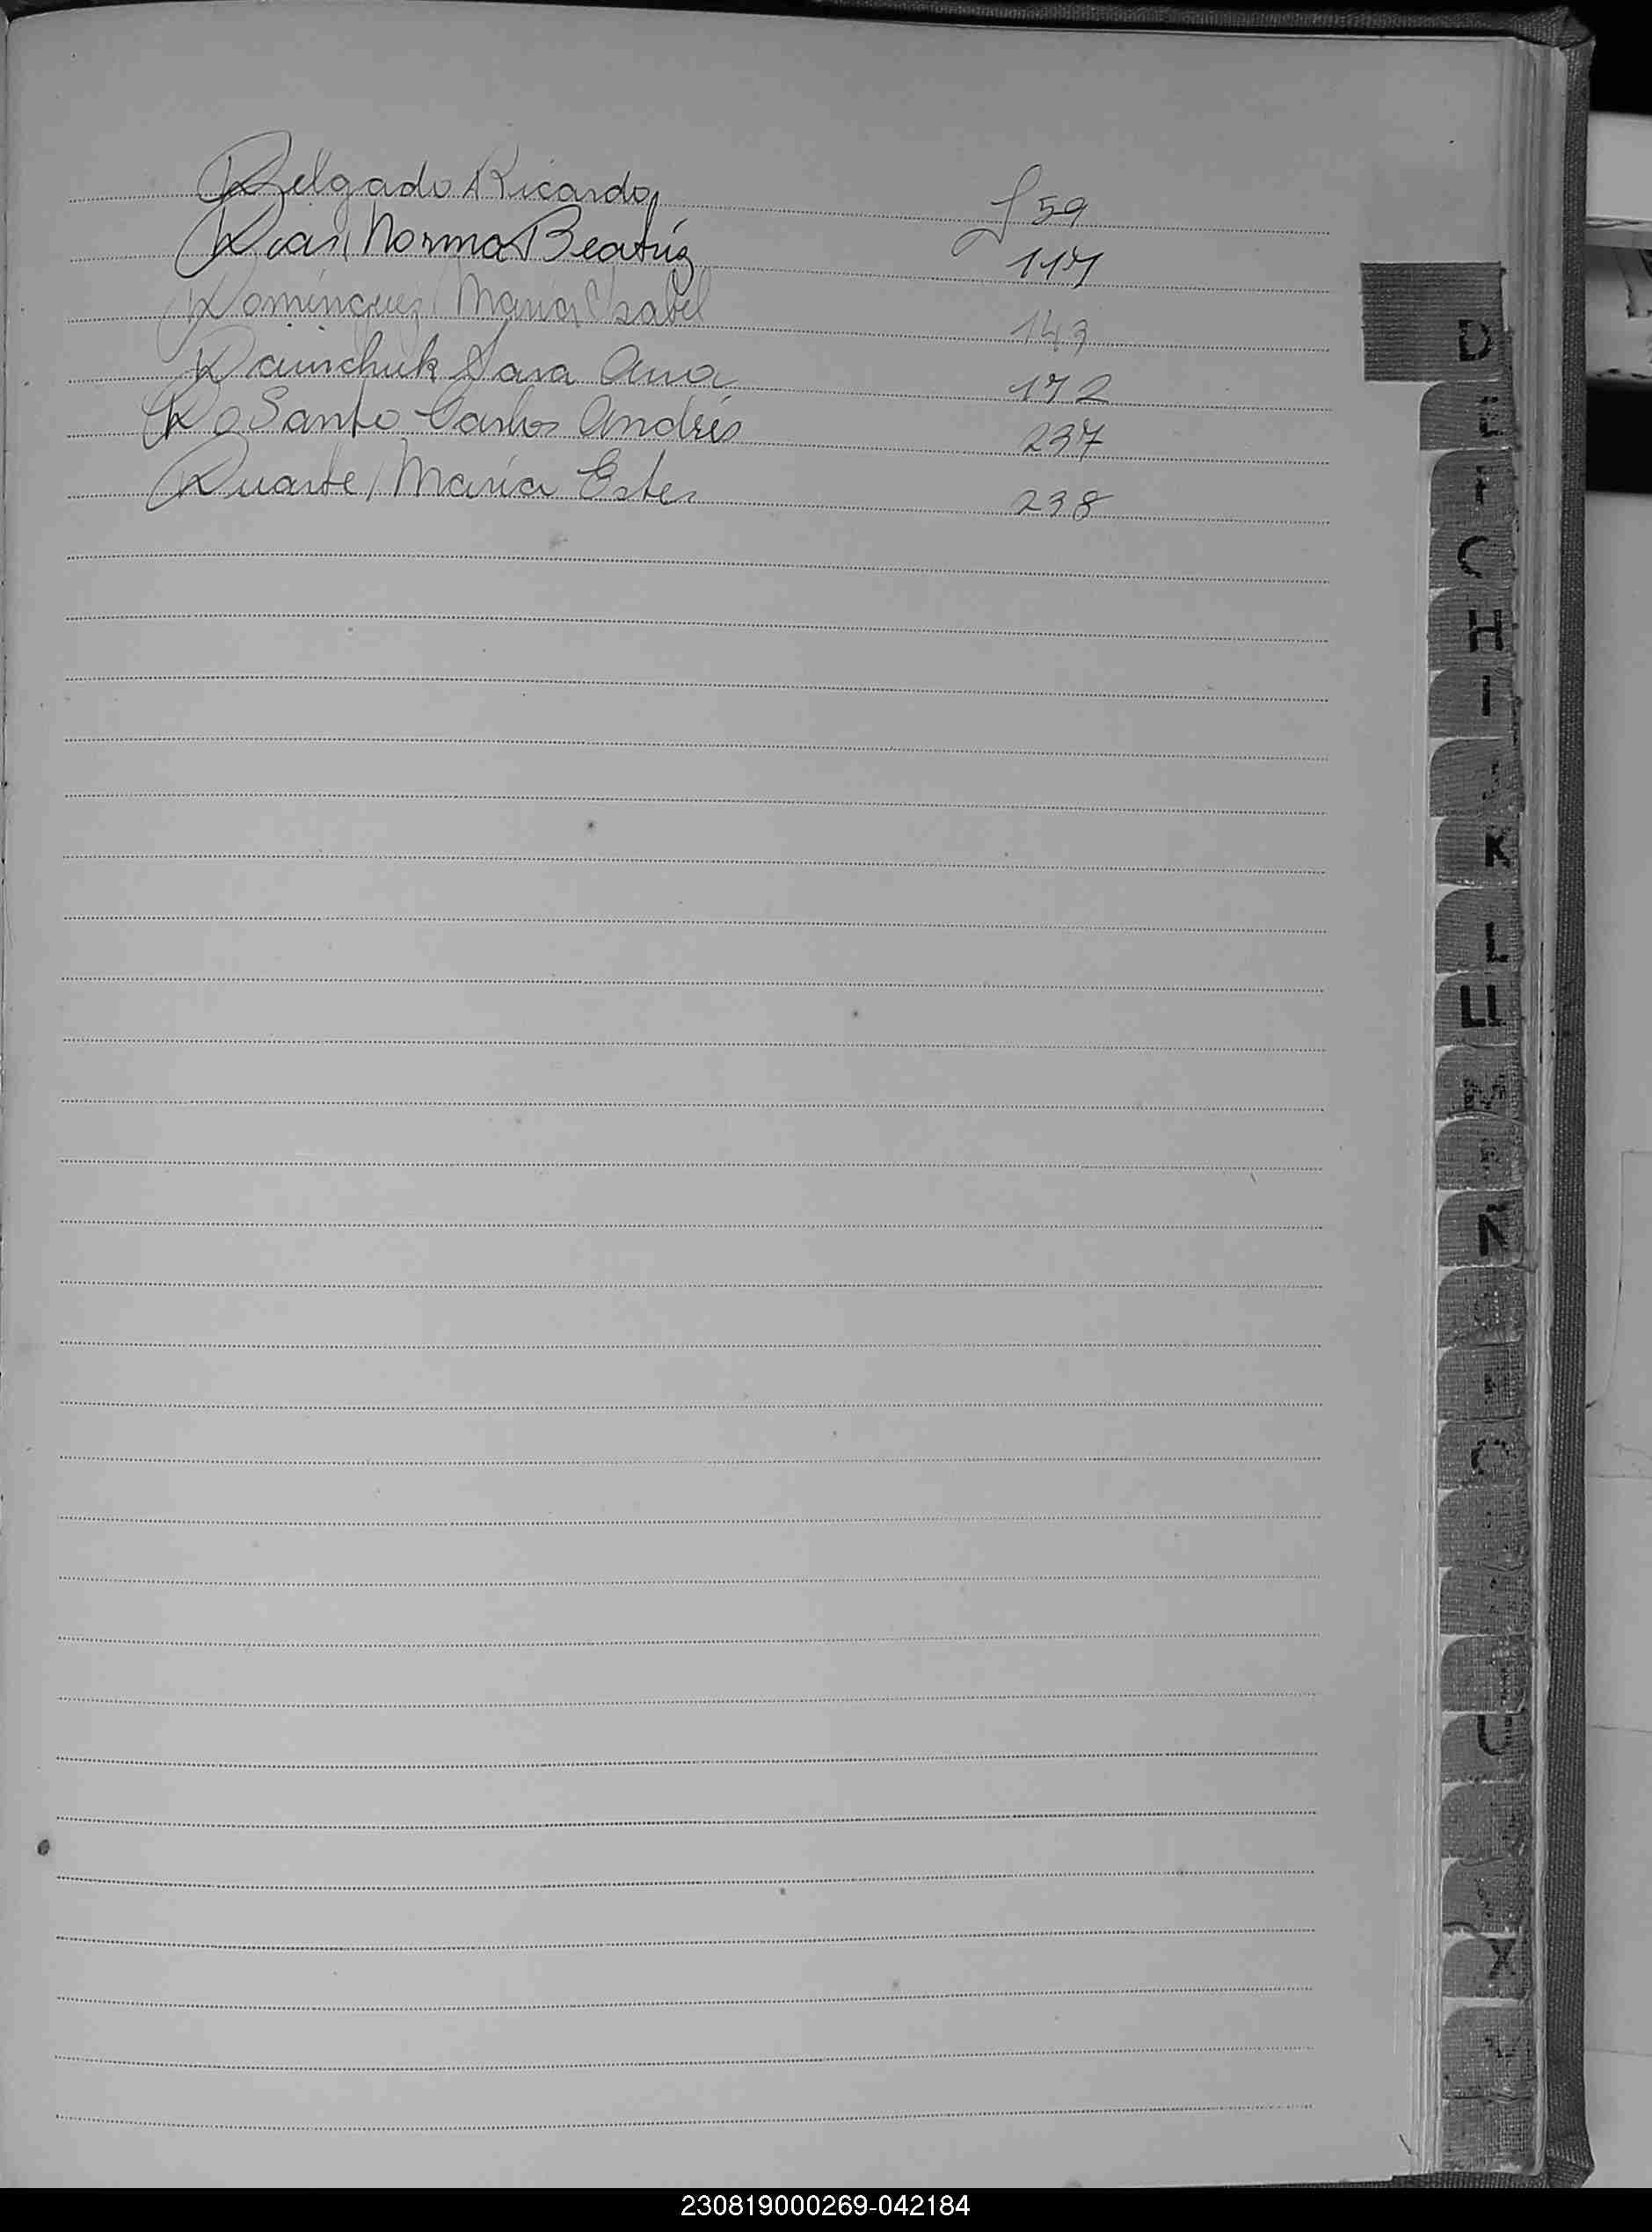 Delgado Ricardo f 59
Dias, Norma Beatriz 117
Dominguez, Maria Isabel 143
Sara Ana 172
Do Santo Carlos Andrés 237
Duarte, María Ester 238
D
F
H
I
K
L
Ll
N
X
230819000269-042184